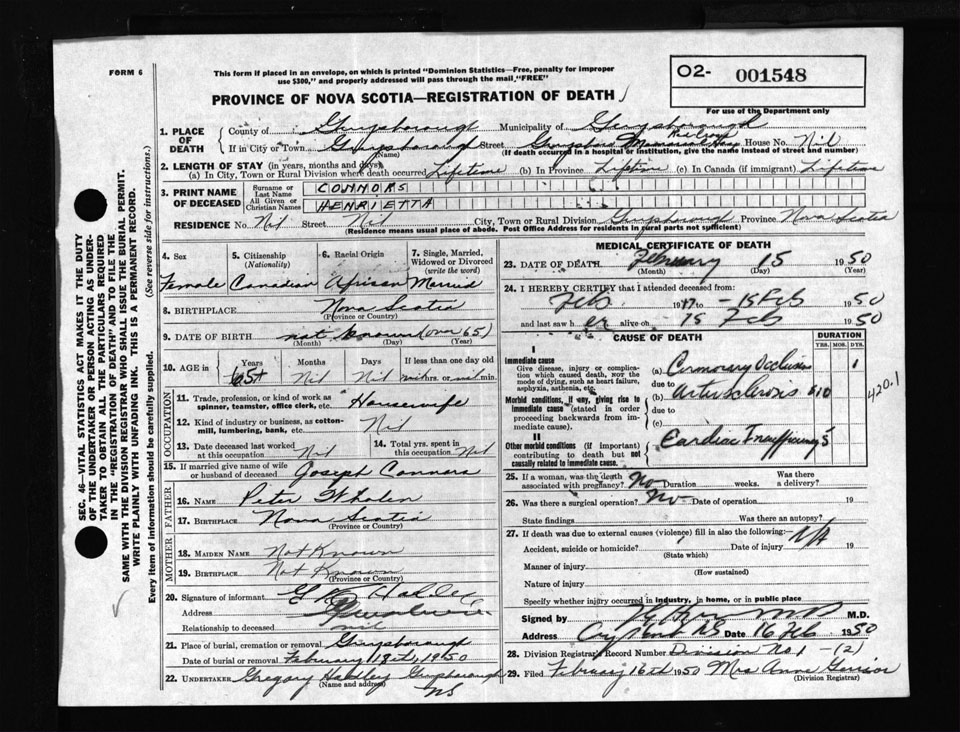 FORM 6
This form if placed in an envelope, on which is printed "Dominion Statistics—Free, penalty for improper
use $300," and properly addressed will pass through the mail "FREE"
PROVINCE OF NOVA SCOTIA—REGISTRATION OF DEATH
O2- 001548
For use of the Department only
1. PLACE OF DEATH
County of Guysborough Municipality of Guysborough
If in City or Town Guysborough Street Guysboro Memorial Hosp House No. Nil
(Name) (If death occurred in a hospital or institution, give the name instead of street and number)
2. LENGTH OF STAY (in years, months and days)
(a) In City, Town or Rural Division where death occurred Lifetime (b) In Province Lifetime (c) In Canada (if immigrant) Lifetime
3. PRINT NAME OF DECEASED
Surname or Last Name CONNORS
All Given or Christian Names HENRIETTA
RESIDENCE No. Nil Street Nil City, Town or Rural Division Guysborough Province Nova Scotia
(Residence means usual place of abode. Post Office Address for residents in rural parts not sufficient)
4. Sex 5. Citizenship (Nationality) 6. Racial Origin 7. Single, Married, Widowed or Divorced (write the word)
Female Canadian African Married
8. BIRTHPLACE Nova Scotia
(Province or Country)
9. DATE OF BIRTH not known (over 65)
(Month) (Day) (Year)
10. AGE in Years Months Days If less than one day old
65+ Nil Nil nil hrs. or nil min.
OCCUPATION
11. Trade, profession or kind of work as spinner, teamster, office clerk, etc. Housewife
12. Kind of industry or business, as cotton-mill, lumbering, bank, etc. Nil
13. Date deceased last worked at this occupation Nil 14. Total yrs. spent in this occupation Nil
15. If married give name of wife or husband of deceased Joseph Connors
FATHER
16. NAME Peter Whalen
17. BIRTHPLACE Nova Scotia
(Province or Country)
MOTHER
18. MAIDEN NAME Not Known
19. BIRTHPLACE Not Known
(Province or Country)
20. Signature of informant
Address
Relationship to deceased nil
21. Place of burial, cremation or removal Guysborough
Date of burial or removal February 18th, 1950
22. UNDERTAKER Gregory Hadley Guysborough
(Name and address) NS
MEDICAL CERTIFICATE OF DEATH
23. DATE OF DEATH February 15 1950
(Month) (Day) (Year)
24. I HEREBY CERTIFY that I attended deceased from:
Feb 15 Feb 1950
and last saw her alive on 15 Feb 1950
CAUSE OF DEATH
DURATION
YRS. MOS. DYS.
I
Immediate cause
Give disease, injury or complication which caused death, not the mode of dying, such as heart failure, asphyxia, asthenia, etc.
(a) Coronary Occlusion 1
due to
Morbid conditions, if any, giving rise to immediate cause (stated in order proceeding backwards from immediate cause).
(b) Arteriosclerosis 10
due to
(c)
420.1
II
Other morbid conditions (if important) contributing to death but not causally related to immediate cause.
Cardiac Insufficiency 5
25. If a woman, was the death associated with pregnancy? No Duration weeks. Was there a delivery?
26. Was there a surgical operation? No Date of operation 19
State findings Was there an autopsy?
27. If death was due to external causes (violence) fill in also the following: N/A
Accident, suicide or homicide? Date of injury 19
(State which)
Manner of injury
(How sustained)
Nature of injury
Specify whether injury occurred in industry, in home, or in public place
Signed by M.D.
Address NS Date 16 Feb 1950
28. Division Registrar's Record Number Division No. 1 - (2)
29. Filed February 16th 1950 Mrs Anne
(Division Registrar)
SEC. 46—VITAL STATISTICS ACT MAKES IT THE DUTY
OF THE UNDERTAKER OR PERSON ACTING AS UNDER-
TAKER TO OBTAIN ALL THE PARTICULARS REQUIRED
IN THE "REGISTRATION OF DEATH" AND TO FILE THE
SAME WITH THE DIVISION REGISTRAR WHO SHALL ISSUE THE BURIAL PERMIT.
WRITE PLAINLY WITH UNFADING INK. THIS IS A PERMANENT RECORD.
Every item of information should be carefully supplied. (See reverse side for instructions.)